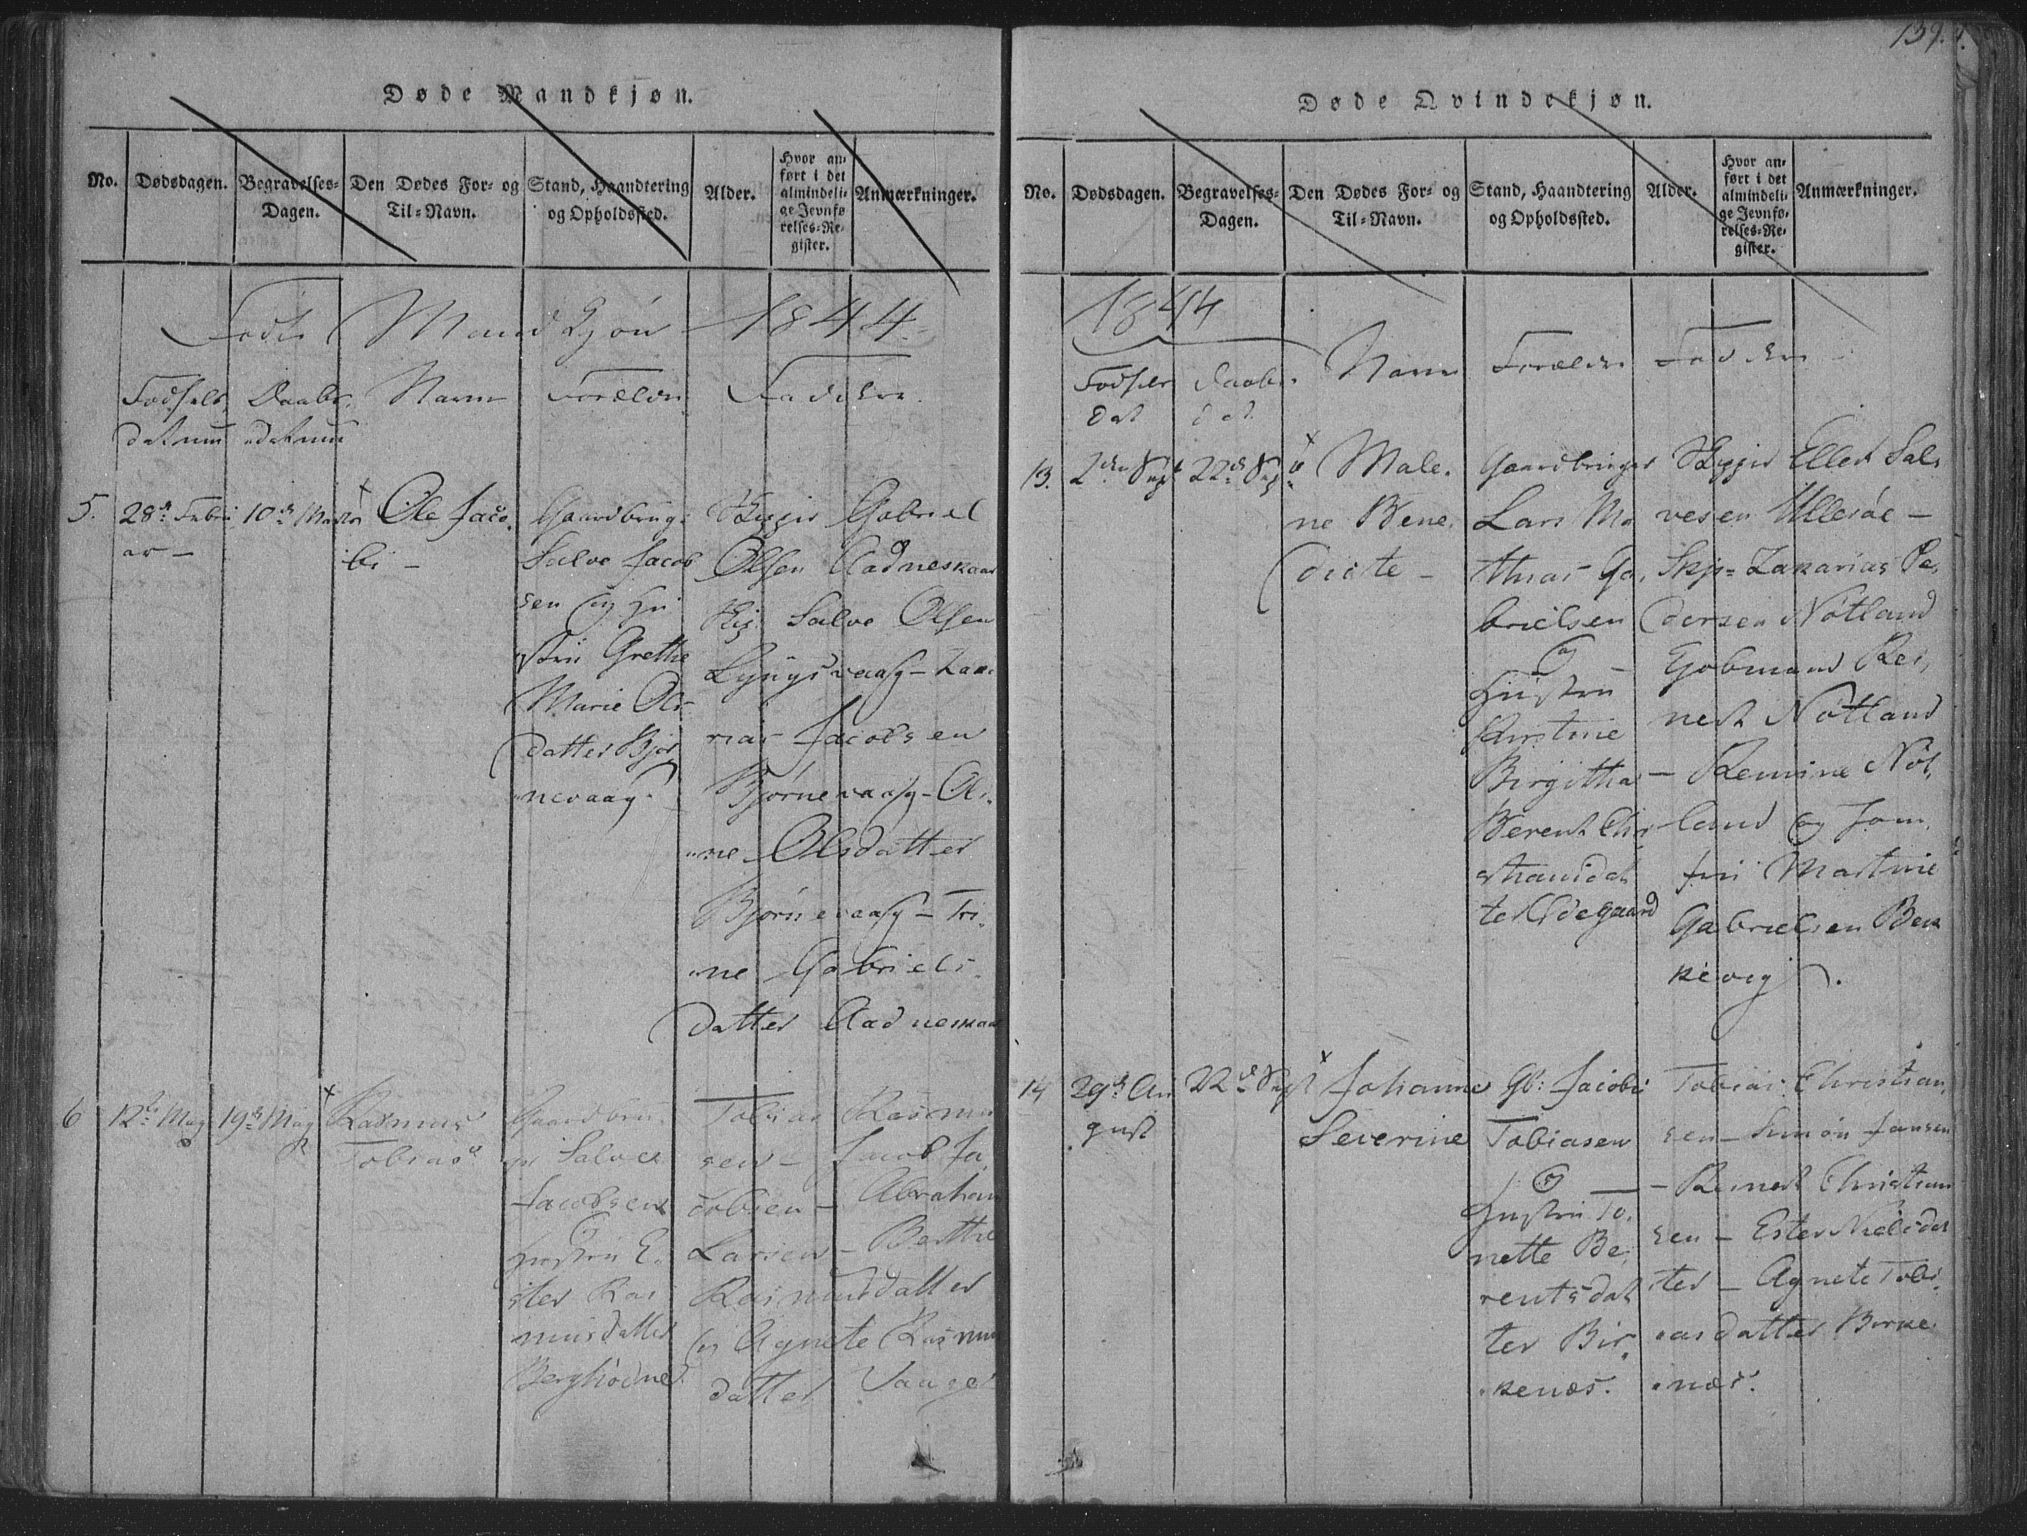 139.
Døde Mandkjøn.
No.
Dødsdagen.
Begravelses-
Dagen.
Den Dødes For- og
Til-Navn.
Stand, Haandtering
og Opholdssted.
Alder.
Hvor an-
ført i det
almindeli-
ge Jevnfø
relses-Re-
gister.
Anmærkninger.
Mand Kjøn 1844.
Fødsels Daabs Navn Forældre Faddere.
datum datum
5. 28de Febru 10de Martii Ole Jaco
ar –
bi –
Gaardbrug.
Salve Jacob
sen og Hu
stru Grethe
Marie Ols
datter Bjør
nevaag.
Skipper Gabriel
Olsen Aadneskaar
Salve Olsen
Lyngsvaag – Zaca
rias Jacobsen
Bjørnevaag – 
ne Olsdatter
Bjørnevaag – Tri
ne Gabriels
datter Aadneskaar
6 12te May 19de May Rasmus
Tobias
Gaardbru
ger Salve
Jacobsen
Hustru E.
ster Ras
musdatter
Berghødne
Tobias Rasmus
sen – Jacob Ja
cobsen – Abraham
Larsen – Berthe
Rasmusdatter
og Agnete Rasmus
datter Vaage
Døde Qvindekjøn.
No.
Dødsdagen.
Begravelses-
Dagen.
Den Dødes For- og
Til-Navn.
Stand, Haandtering
og Opholdssted.
Alder.
Hvor an-
ført i det
almindeli-
ge Jevnfø-
relses-Re-
gister.
Anmærkninger.
1844
Fødsels Daabs Navn Forældre Faddere
dat dat
13. 2den Sept 22de Sept Male
ne Bene
dicte –
Gaardbruger
Lars Ma
thias Ga
brielsen
og
Hustru
Christine
Birgitha
Berent Chri
stiansdat
ter Ødegaard
Skipper Ellert Sal
vesen Ullerøe –
Skip= Zakarias Pe
dersen Nøtland
Gobmand Rei
nert Nøtland
– Remine Nøt
land og Jom
fru Martine
Gabrielsen Bek
kevig.
14 29de Au 22de Sept Johanne
gust
Severine
Gb: Jacob
Tobiasen
og
Hustru To
nette Be
rentsdat
ter Bir
kenæs.
Tobias Christian
sen – Simon Jansen
– Reinert Christian
sen – Ester Nielsdat
ter – Agnete Tobi
asdatter Birke
næs.